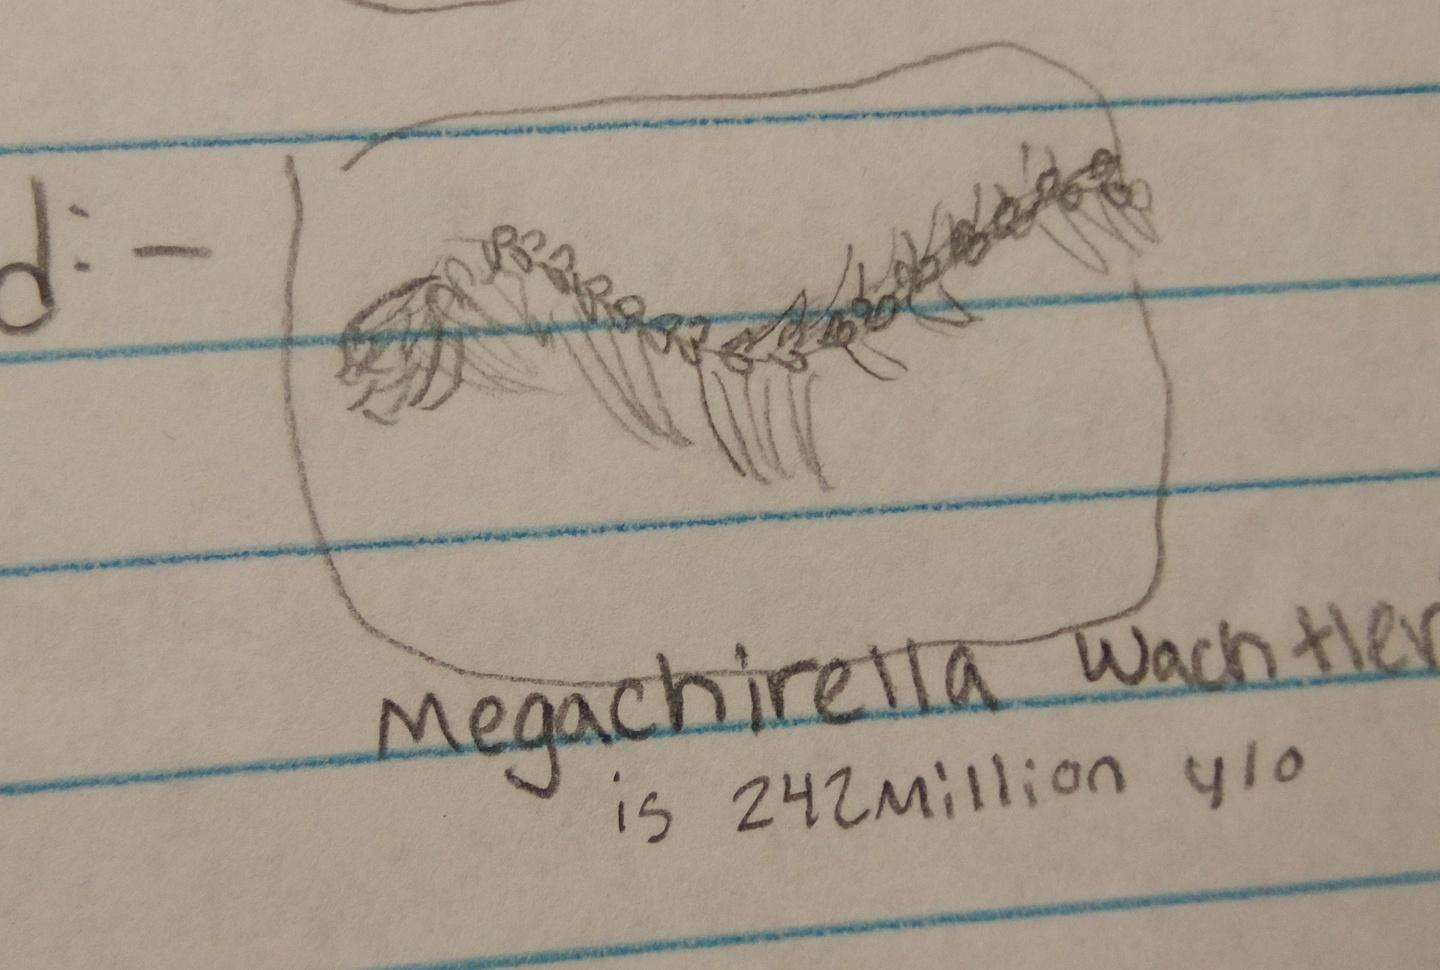 d: -
Megachirella Wachtler
is 242 Million y/o